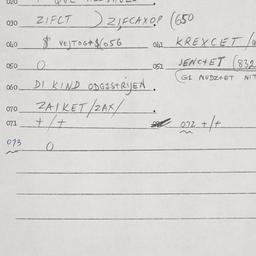 030 ZIFCT ) ZIFCAXOP (650
040 $ VEJTOG+$(056 041 KREXCET
050 O 051 JENC+ET (832
(G1 NUDZ+ET NIT
060 DI KIND ODGIS+RIJEN .
070 ZAIKET/ZAX/ .
071 +/+ 072 +/+
073 O